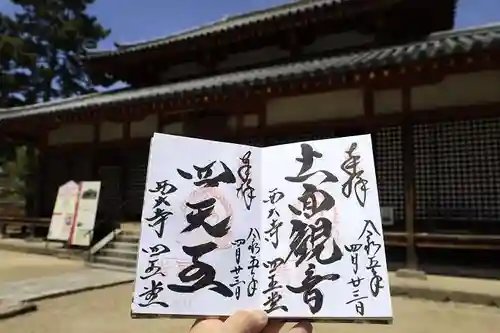 奉拝
令和五年
四月廿三日
十一面觀音
西大寺
四王堂
奉拝
令和五年
四月廿三日
四天王
西大寺
四王堂